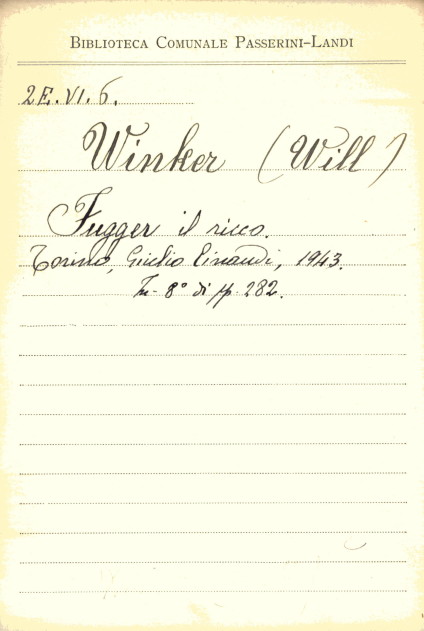 BIBLIOTECA COMUNALE PASSERINI-LANDI
2E.VI.6.
Winker (Will)
Fugger il ricco.
Torino, Giulio Einaudi, 1943.
In-8° di pp. 282.